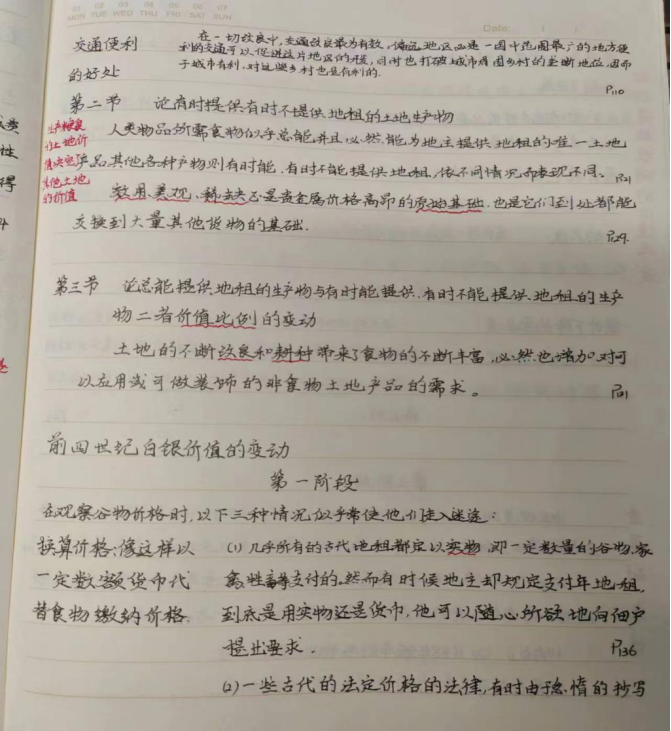 01 02 03 04 05 06 07
MON TUE WED THU FRI SAT SUN
Date: / /
交通便利
的好处
在一切改良中,交通改良最为有效,偏远地区必是一国中范围最广的地方便
利的交通可以促进这片地区的开发,同时也打破城市周围乡村的垄断地位,因而
于城市有利,对这些乡村也是有利的.
P110
第二节 论有时提供有时不提供地租的土地生产物
生产粮食
的土地价
值决定
其他土地
的价值
人类物品所需食物似乎总能并且必然能为地主提供地租的唯一土地
产品,其他各种产物则有时能,有时不能提供地租,依不同情况而表现不同.
P121
效用、美观、稀缺正是贵金属价格高昂的原始基础,也是它们到处都能
交换到大量其他货物的基础.
P129.
第三节 论总能提供地租的生产物与有时能提供,有时不能提供地租的生产
物二者价值比例的变动
土地的不断改良和耕种带来了食物的不断丰富,必然也增加对可
以应用或可做装饰的非食物土地产品的需求。
前四世纪白银价值的变动
第一阶段
在观察谷物价格时,以下三种情况似乎常使他们走入迷途:
换算价格:像这样以
一定数额货币代
替食物缴纳价格
(1) 几乎所有的古代地租都定以实物,即一定数量的谷物、家
禽、牲畜支付的.然而有时候地主却规定支付年地租,
到底是用实物还是货币,他可以随心所欲地向佃户
提出要求.
P136
(2) 一些古代的法定价格的法律,有时由于怠惰的抄写